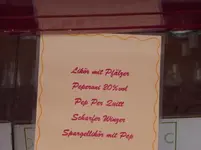 Likör mit Pfälzer
Peperoni 20%vol
Pep Per Quitt
Scharfer Winzer
Spargellikör mit Pep